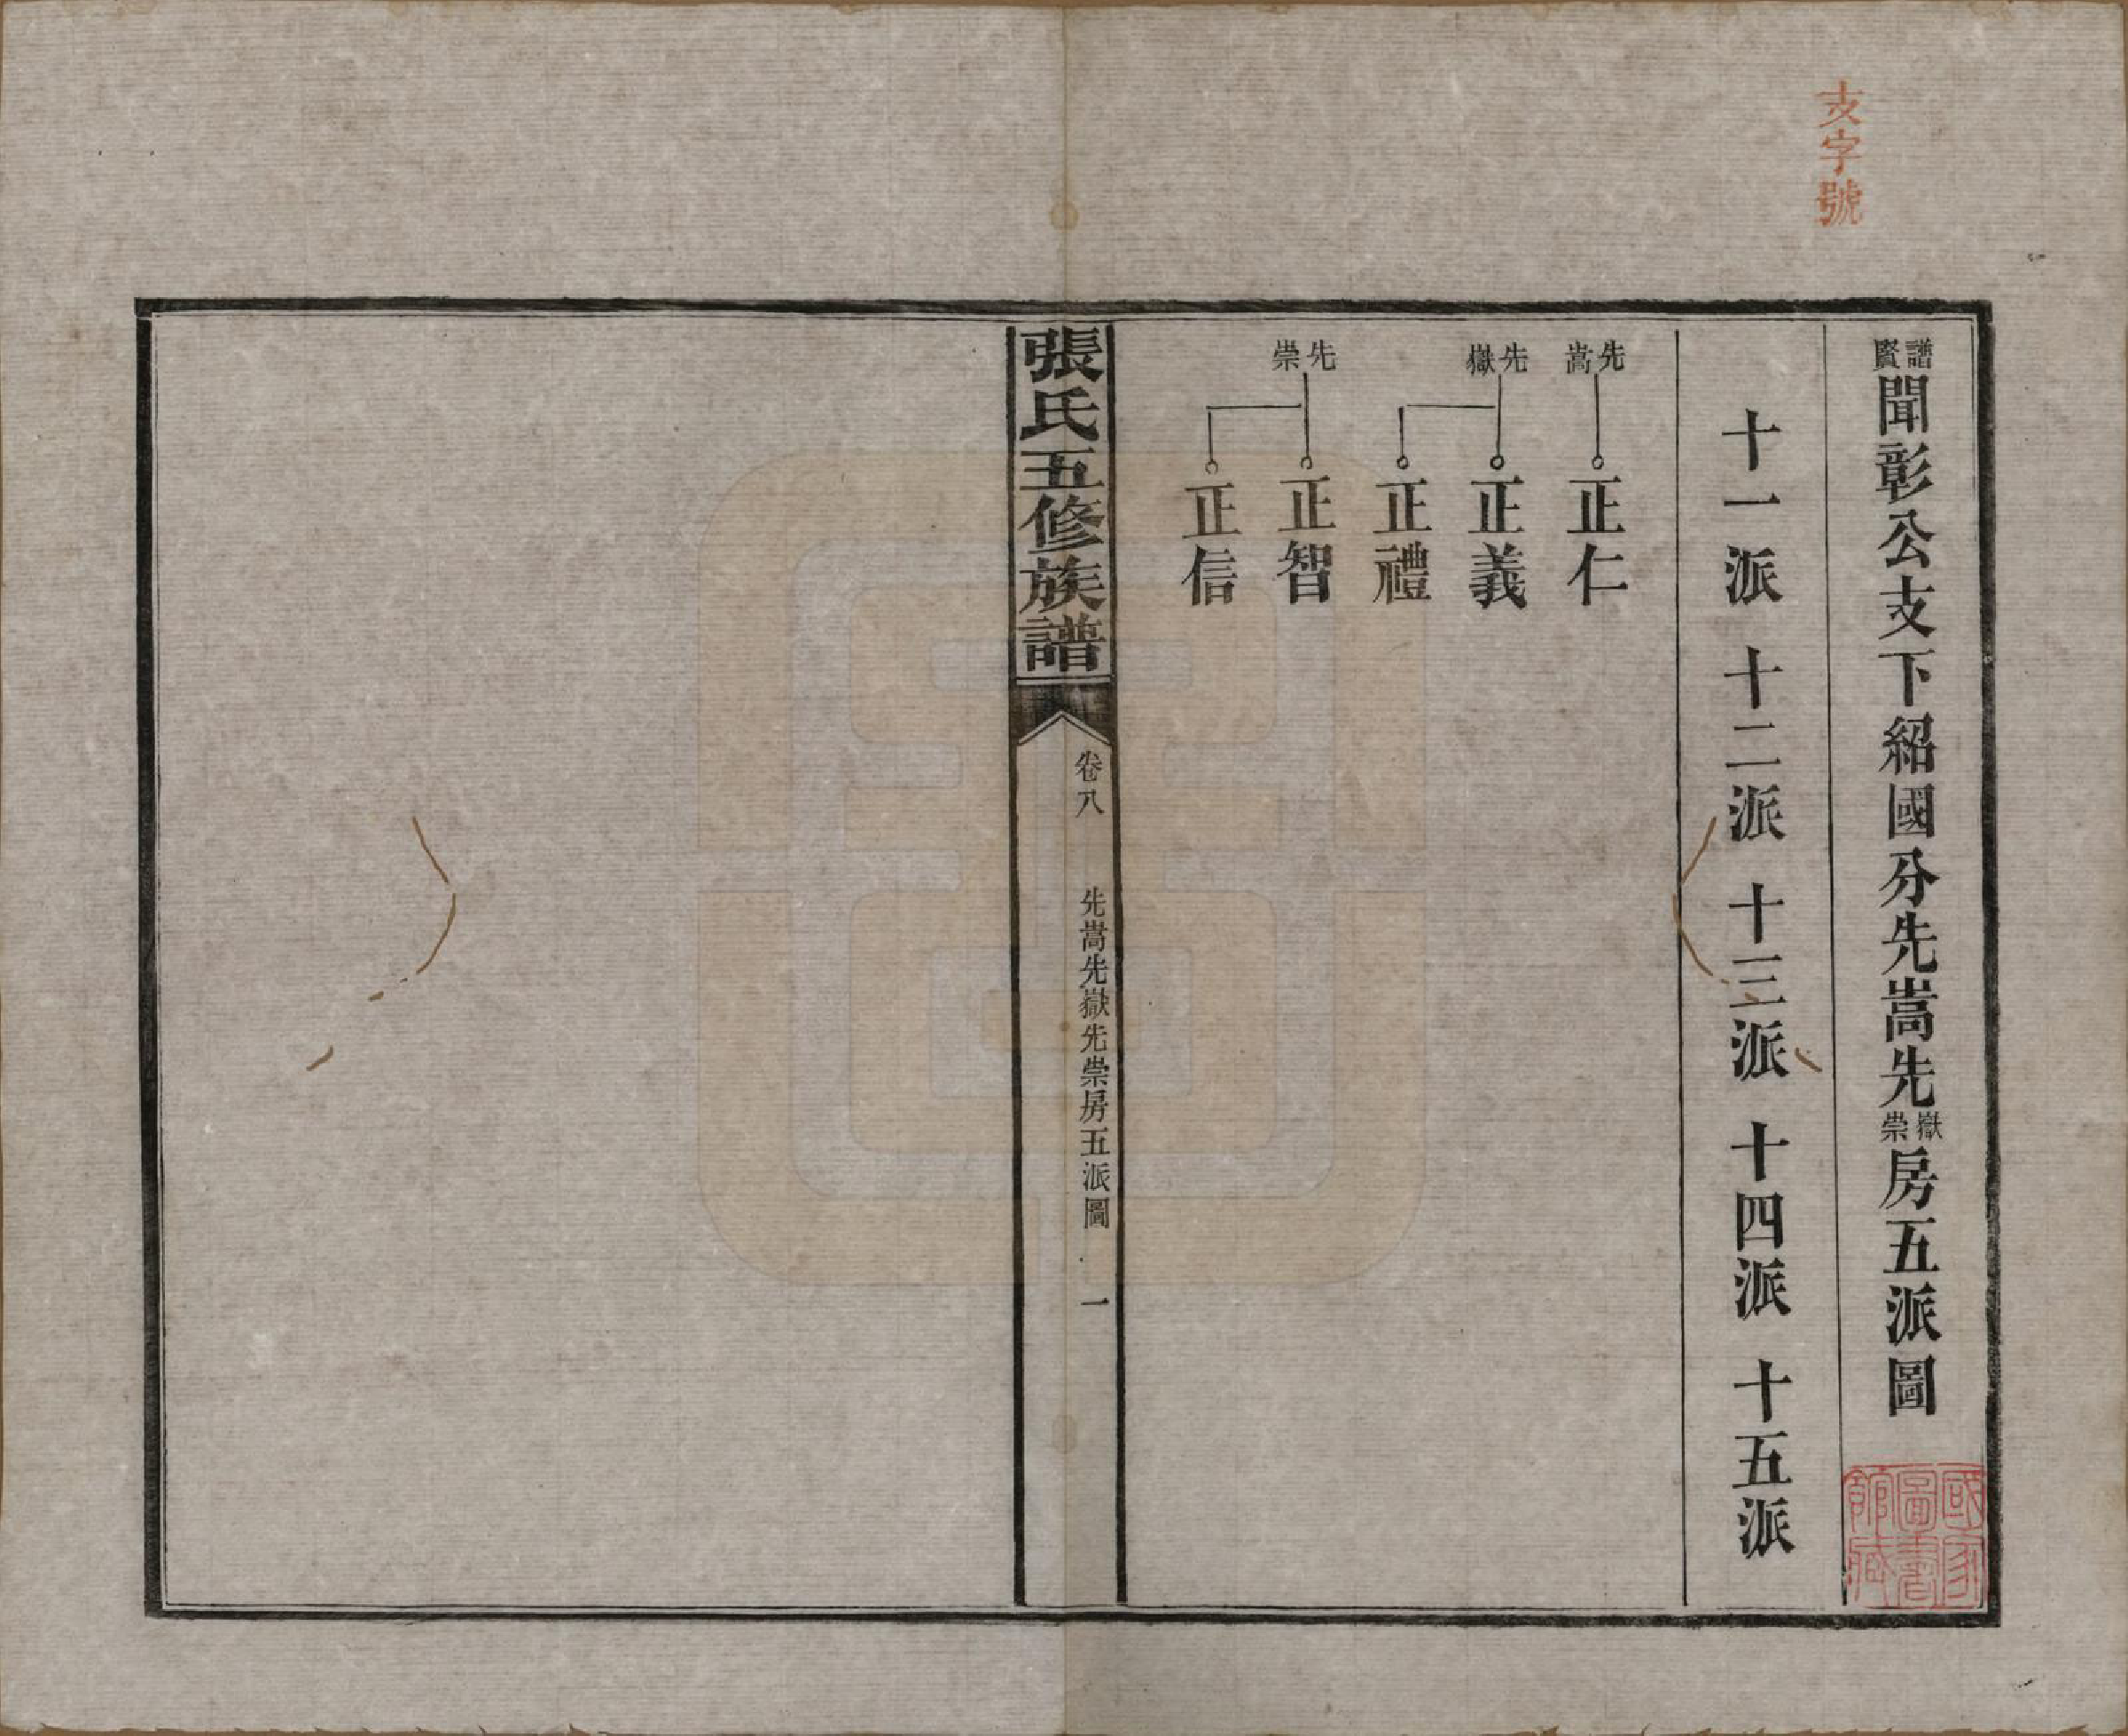 支字號
譜賢聞彰公支下紹國分先嵩先嶽崇房五派圖
十一派 十二派 十三派 十四派 十五派
先嵩 正仁
先嶽 正義
正禮
先崇 正智
正信
張氏五修族譜 卷八 先嵩先嶽先崇房五派圖 一
國家圖書館藏